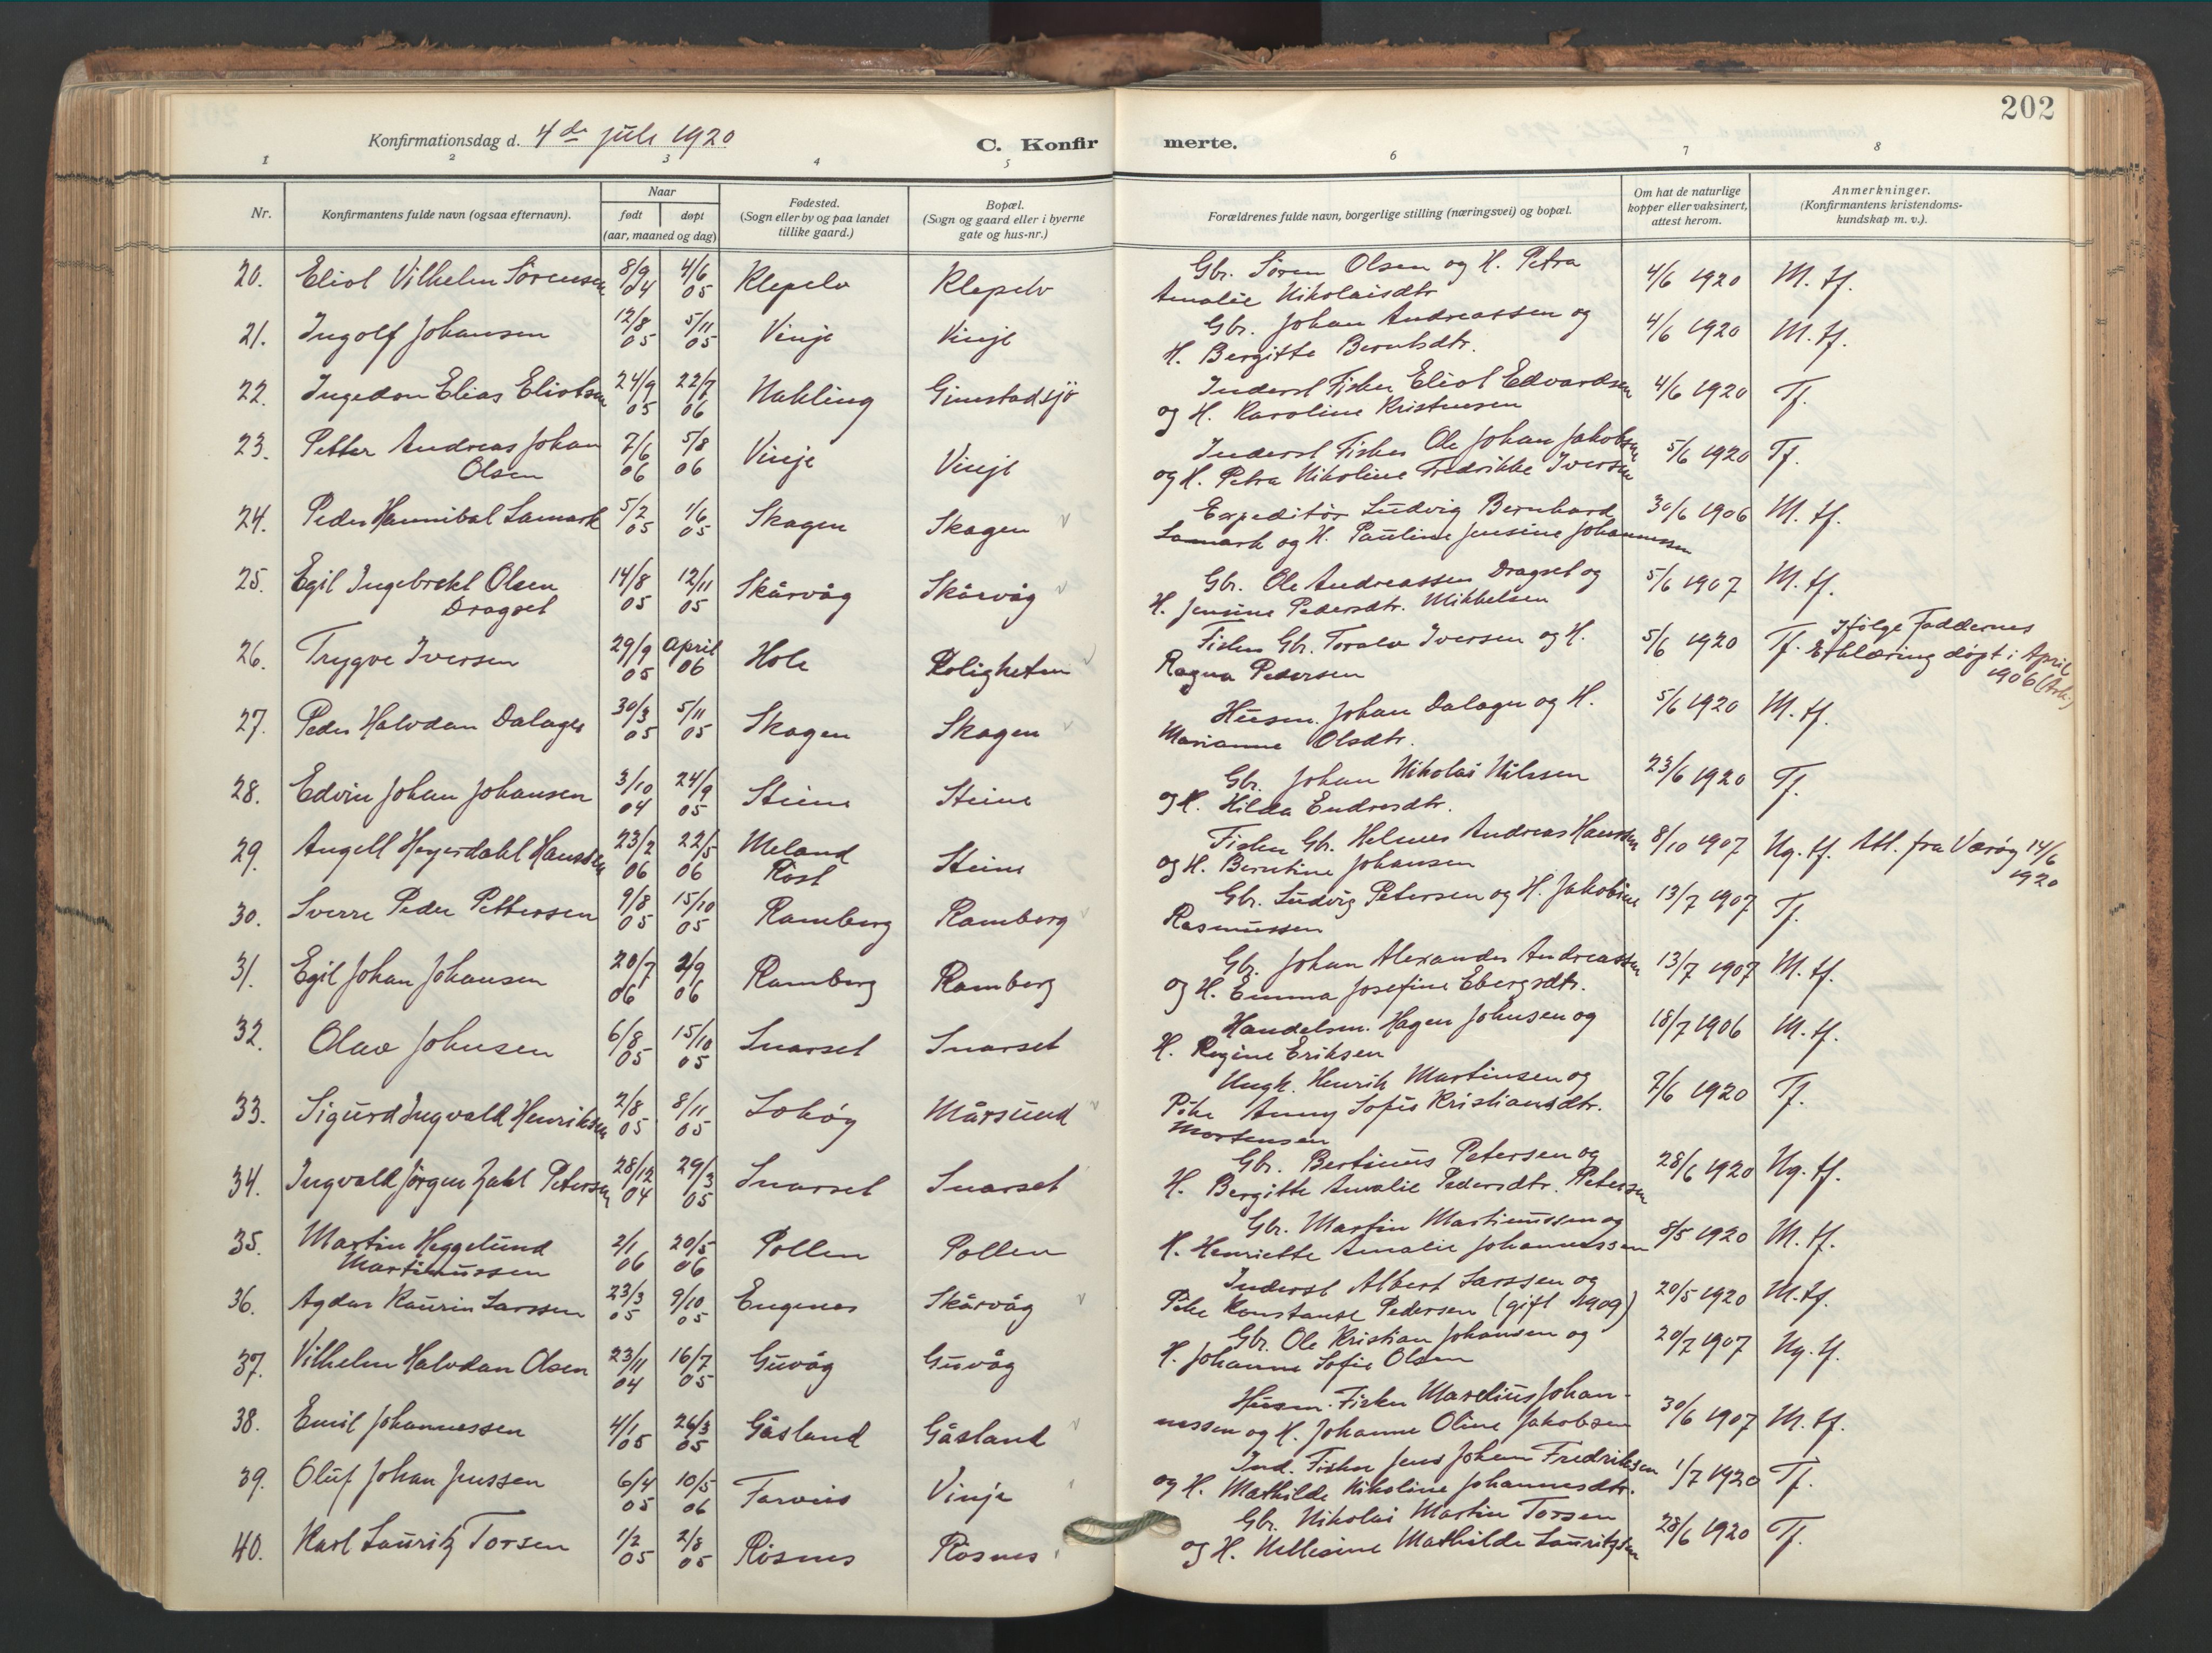 202
Konfirmationsdag d. 4de juli 1920
C. Konfirmerte.
1 2 3 4 5 6 7 8
Nr.
Konfirmantens fulde navn (ogsaa efternavn).
Naar
født døpt
(aar, maaned og dag)
Fødested.
(Sogn eller by og paa landet
tillike gaard.)
Bopæl.
(Sogn og gaard eller i byerne
gate og hus-nr.)
Forældrenes fulde navn, borgerlige stilling (næringsvei) og bopæl.
Om hat de naturlige
kopper eller vaksinert,
attest herom.
Anmerkninger.
(Konfirmantens kristendoms-
kundskap m. v.).
20. Eliot Vilhelm Sörensen 8/9 04 4/6 05 Klepelv Klepelv Gbr. Sören Olsen og H. Petra 4/6 1920 M. tf.
Amalie Nikolaisdtr
21. Ingolf Johansen 12/8 05 5/11 05 Vinje Vinje Gbr. Johan Andreassen og 4/6 1920 M. tf.
H. Bergitte Berntsdtr.
22. Ingedon Elias Eliotsen 24/9 05 22/7 06 Nakling Gimstadsjö Inderst Fisker Eliot Edvardsen 4/6 1920 Tf.
og H. Karoline Kristensen
23. Petter Andreas Johan 7/6 06 5/8 06 Vinje Vinje Inderst Fisker Ole Johan Jakobsen 5/6 1920 Tf.
Olsen og H. Petra Nikoline Fredrikke Iversen
24. Peder Hannibal Lamark 5/2 05 1/6 05 Skagen Skagen Expeditör Ludvig Bernhard 30/6 1906 M. tf.
Lamark og H. Pauline Jensine Johannessen
25. Egil Ingebrekt Olsen 14/8 05 12/11 05 Skårvåg Skårvåg Gbr. Ole Andreassen Dragset og 5/6 1907 M. tf.
Dragset H. Jensine Pedersdtr. Mikkelsen
26. Trygve Iversen 29/9 05 April 06 Hole Roligheten Fisker Gbr. Toralv Iversen og H. 5/6 1920 Tf. Ifölge Faddernes
Ragna Pedersen Erklæring døpt i April
1906
27. Peder Halvdan Dalager 30/3 05 5/11 05 Skagen Skagen Husm. Johan Dalager og H. 5/6 1920 M. tf.
Marianne Olsdtr.
28. Edvin Johan Johansen 3/10 04 24/9 05 Steine Steine Gbr. Johan Nikolai Nilssen 23/6 1920 Tf.
og H. Hilda Endresdtr.
29. Angell Heyerdahl Hanssen 23/2 06 22/5 06 Meland Steine Fisker Gbr. Helmer Andreas Hanssen 8/10 1907 Ng. tf. Att. fra Værøy 14/6
Röst og H. Berntine Johansen 1920
30. Sverre Peder Pettersen 9/8 05 15/10 05 Ramberg Ramberg Gbr. Ludvig Petersen og H. Jakobine 13/7 1907 Tf.
Rasmussen
31. Egil Johan Johansen 20/7 06 2/9 06 Ramberg Ramberg Gbr. Johan Alexander Andreassen 13/7 1907 M. tf.
og H. Emma Josefine Ebergsdtr.
32. Olav Johnsen 6/8 05 15/10 05 Snarset Snarset Handelsm. Hagen Johnsen og 18/7 1906 M. tf.
H. Regine Eriksen
33. Sigurd Ingvald Henriksen 2/8 05 8/11 05 Sohöy Mårsund Ungk. Henrik Martinsen og 7/6 1920 Tf.
Pike Anny Sofie Kristiansdtr.
Mortensen
34. Ingvald Jörgen Zahl Petersen 28/12 04 29/3 05 Snarset Snarset Gbr. Bertinus Petersen og 28/6 1920 Ng. tf.
H. Bergitte Amalie Pedersdtr. Petersen
35. Martin Heggelund 2/1 06 20/5 06 Pollen Pollen Gbr. Martin Martinussen og 8/5 1920 M. tf.
Martinussen H. Henriette Amalie Johannessen
36. Agdar Kaurin Larssen 23/3 05 9/10 05 Engenes Skårvåg Inderst Albert Larssen og 20/5 1920 M. tf.
Pike Konstanse Pedersen (gift 1909)
37. Vilhelm Halvdan Olsen 23/11 04 16/7 05 Guvåg Guvåg Gbr. Ole Kristian Johansen og 20/7 1907 Ng. tf.
H. Johanne Sofie Olsen
38. Emil Johannessen 4/1 05 26/3 05 Gåsland Gåsland Husm. Fisker Marelius Johan- 30/6 1907 M. tf.
nessen og H. Johanne Oline Jakobsen
39. Oluf Johan Jenssen 6/4 05 10/5 06 Farvis Vinje Ind. Fisker Jens Johan Fredriksen 1/7 1920 Tf.
og H. Mathilde Nikoline Johannesdtr.
40. Karl Lauritz Torsen 1/2 05 2/8 05 Rösnes Rösnes Gbr. Nikolai Martin Torsen 28/6 1920 Tf.
og H. Nellesine Mathilde Lauritzsen